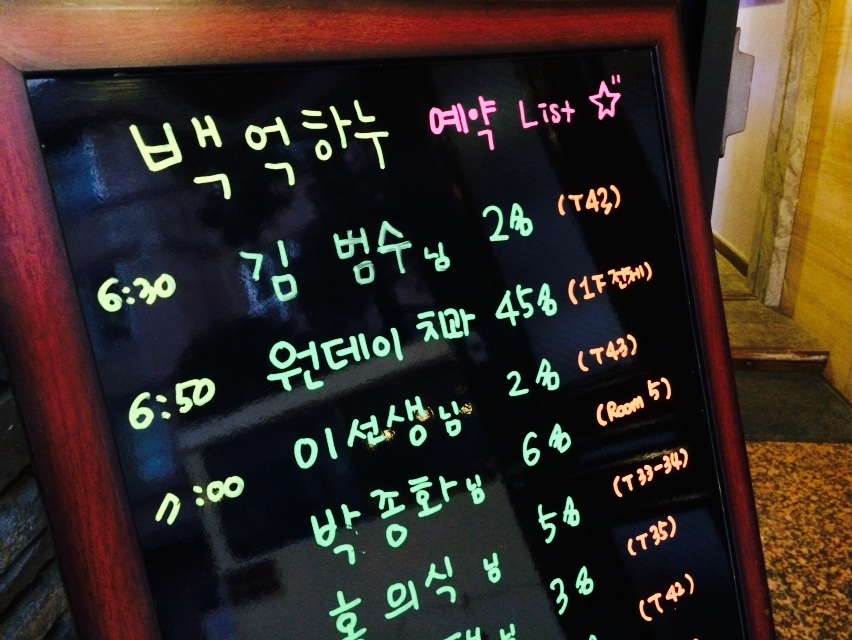 백억하누 예약 List ☆
6:30 김 범수님 2名 (T43)
6:50 원데이 치과 45名 (1F 전체)
7:00 이선생님 2名 (T43)
박종화님 6名 (Room 5)
홍의식님 5名 (T33-34)
3名 (T35)
(T42)